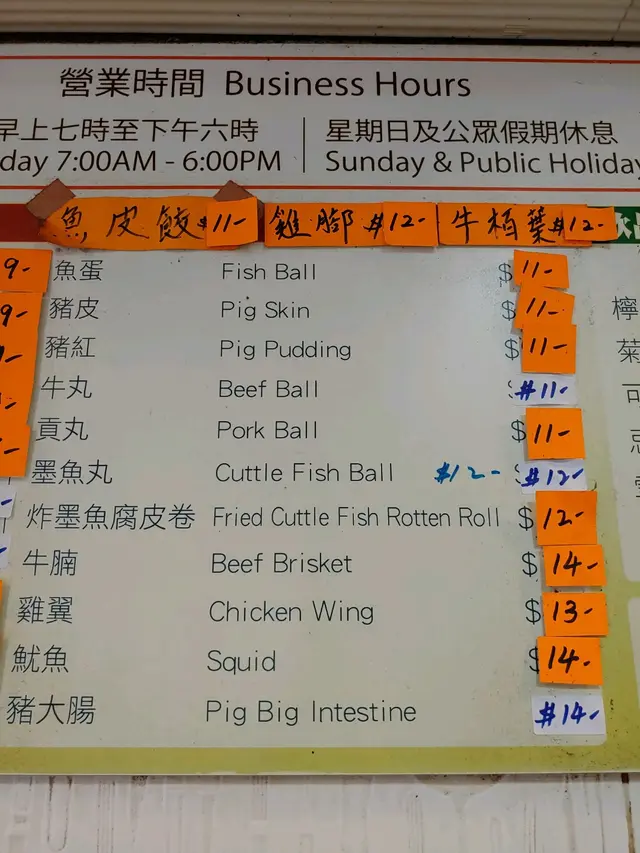 營業時間 Business Hours
早上七時至下午六時 星期日及公眾假期休息
day 7:00AM - 6:00PM Sunday & Public Holiday
魚皮餃 $11- 雞腳 $12- 牛栢葉 $12-
9- 魚蛋 Fish Ball $ 11-
9- 豬皮 Pig Skin $ 11-
豬紅 Pig Pudding $ 11-
牛丸 Beef Ball $11-
貢丸 Pork Ball $ 11-
墨魚丸 Cuttle Fish Ball $12- $12-
炸墨魚腐皮卷 Fried Cuttle Fish Rotten Roll $ 12-
牛腩 Beef Brisket $ 14-
雞翼 Chicken Wing $ 13-
魷魚 Squid $ 14-
豬大腸 Pig Big Intestine $14-
檸
菊
可